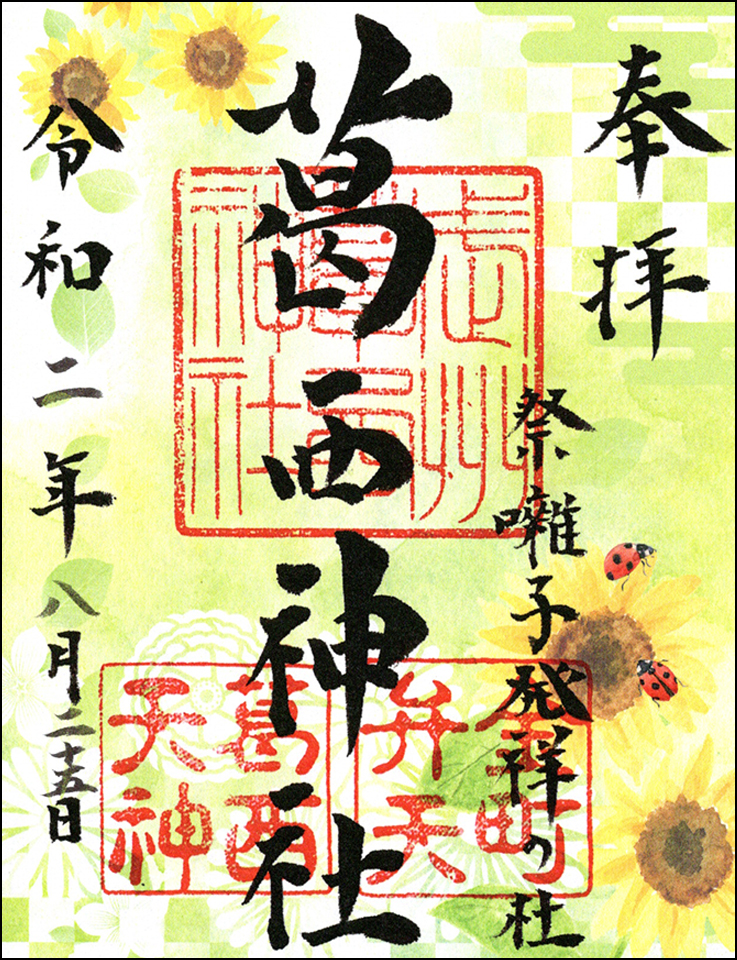 奉拝
祭囃子発祥の杜
葛西神社
令和二年八月二十五日
武州
葛西
神社
金町
弁天
葛西
天神